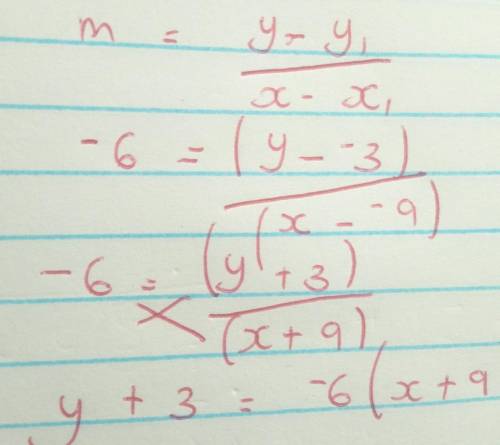 m = y - y₁ / x - x₁
-6 = (y - -3) / (x - -9)
-6 = (y + 3) / (x + 9)
y + 3 = -6(x + 9